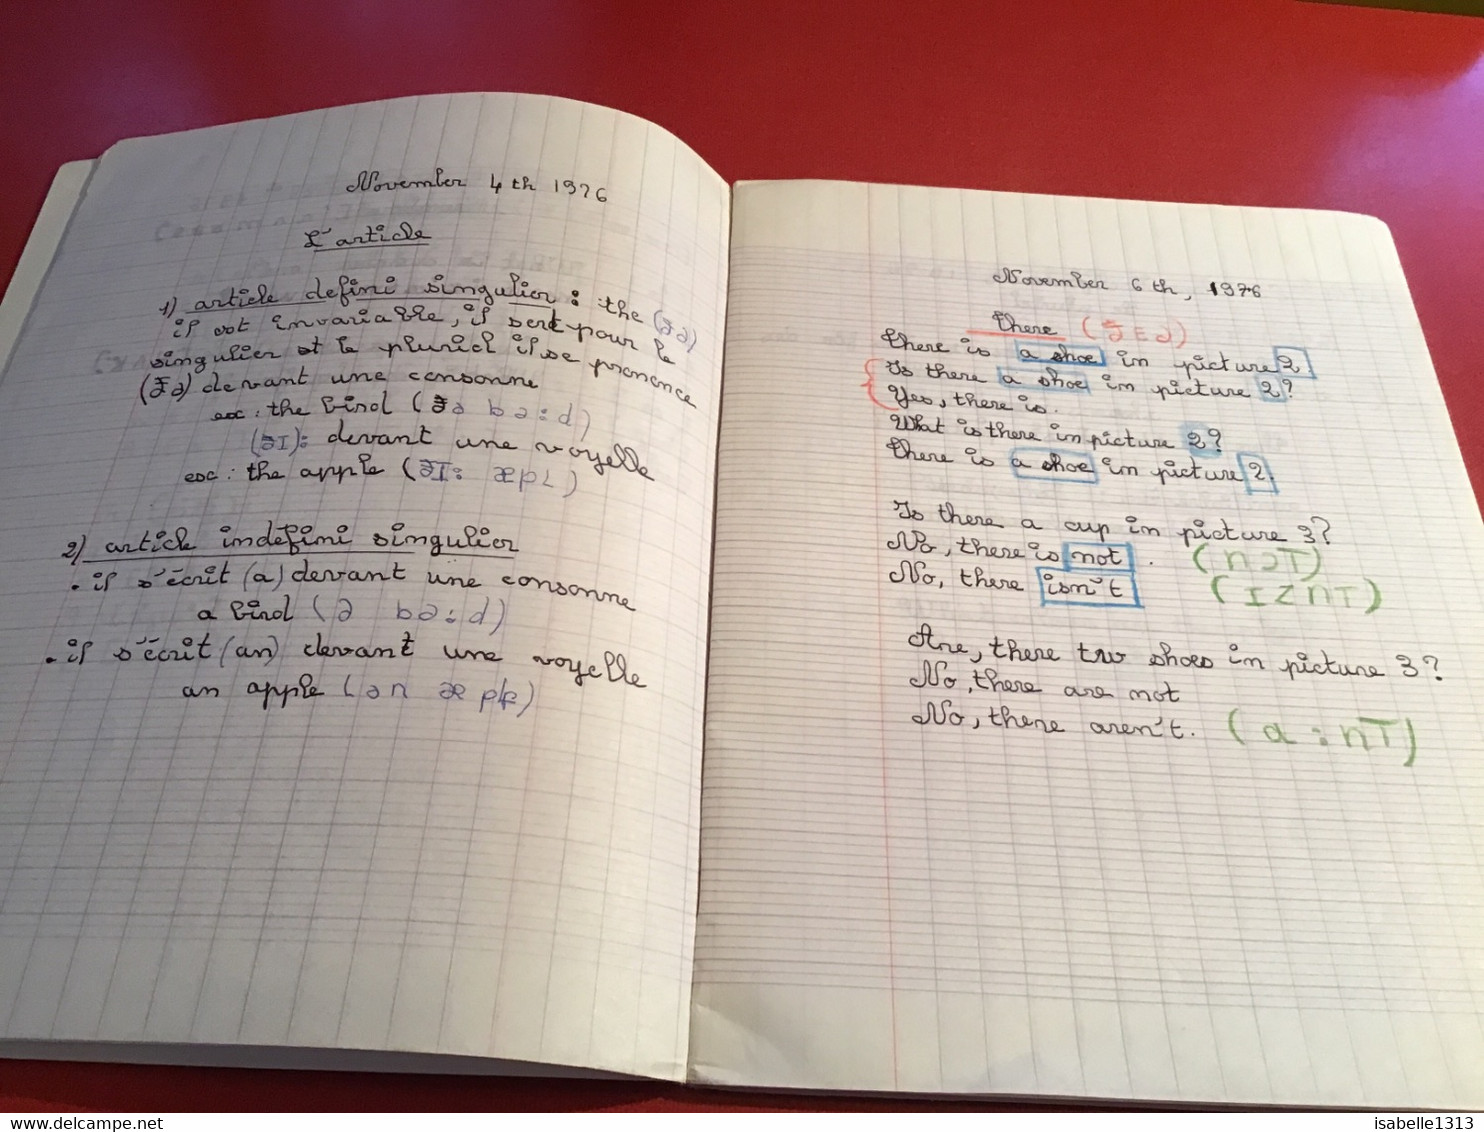 November 4th 1976
L'article
1) article défini singulier : the (ðə)
il est invariable, il sert pour le
singulier et le pluriel il se prononce
(ðə) devant une consonne
ex : the bird (ðə bə:d)
(ðI): devant une voyelle
ex : the apple (ðI: æpl)
2) article indéfini singulier
. il s'écrit (a) devant une consonne
a bird (ə bə:d)
. il s'écrit (an) devant une voyelle
an apple (ən æpl)
November 6th, 1976
there (ðEə)
there is a shoe in picture 2
Is there a shoe in picture 2?
Yes, there is.
What is there in picture 2?
there is a shoe in picture 2.
Is there a cup in picture 3?
No, there is not . (nɔT)
No, there isn't (IZnT)
Are, there two shoes in picture 3?
No, there are not
No, there aren't. (a:nT)
www.delcampe.net
isabelle1313